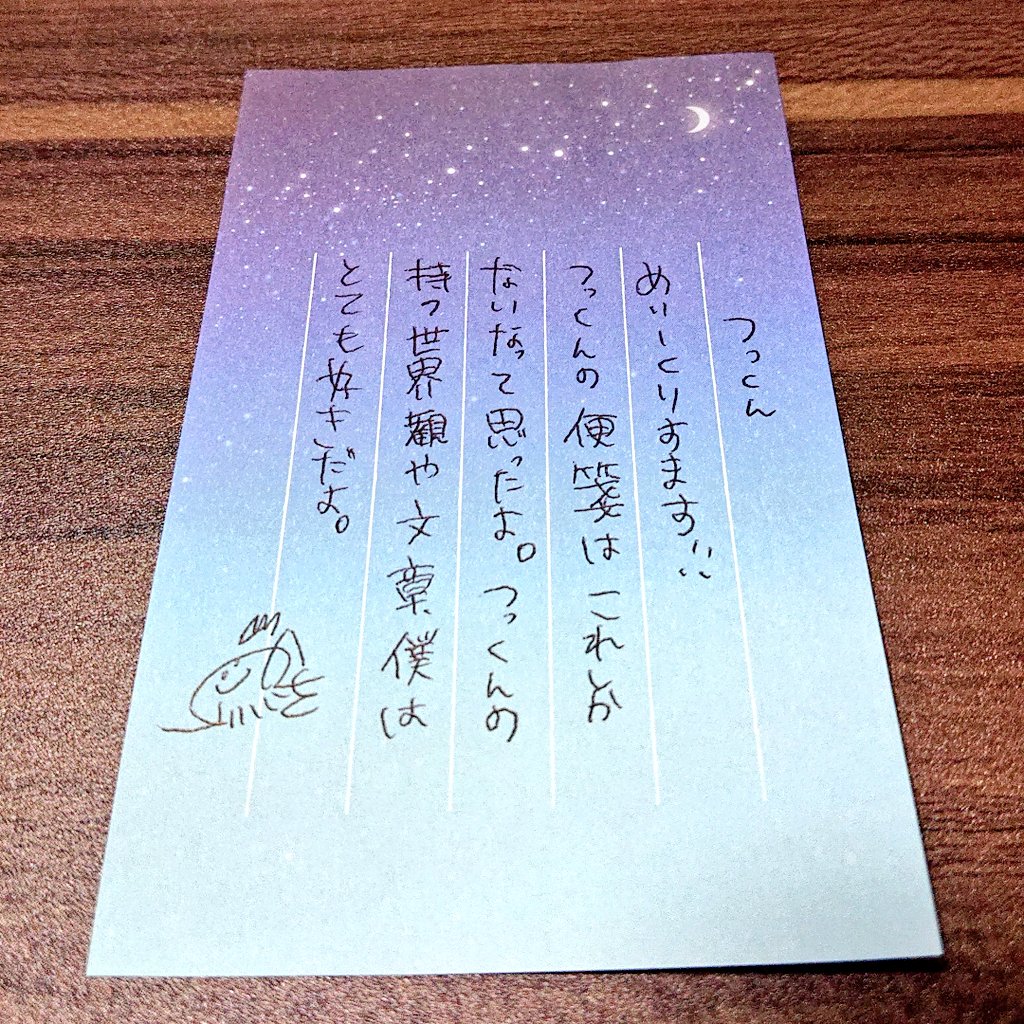 つっくん
めりーくりすます!!
つっくんの便箋はこれしか
ないなって思ったよ。つっくんの
持つ世界観や文章、僕は
とても好きだよ。